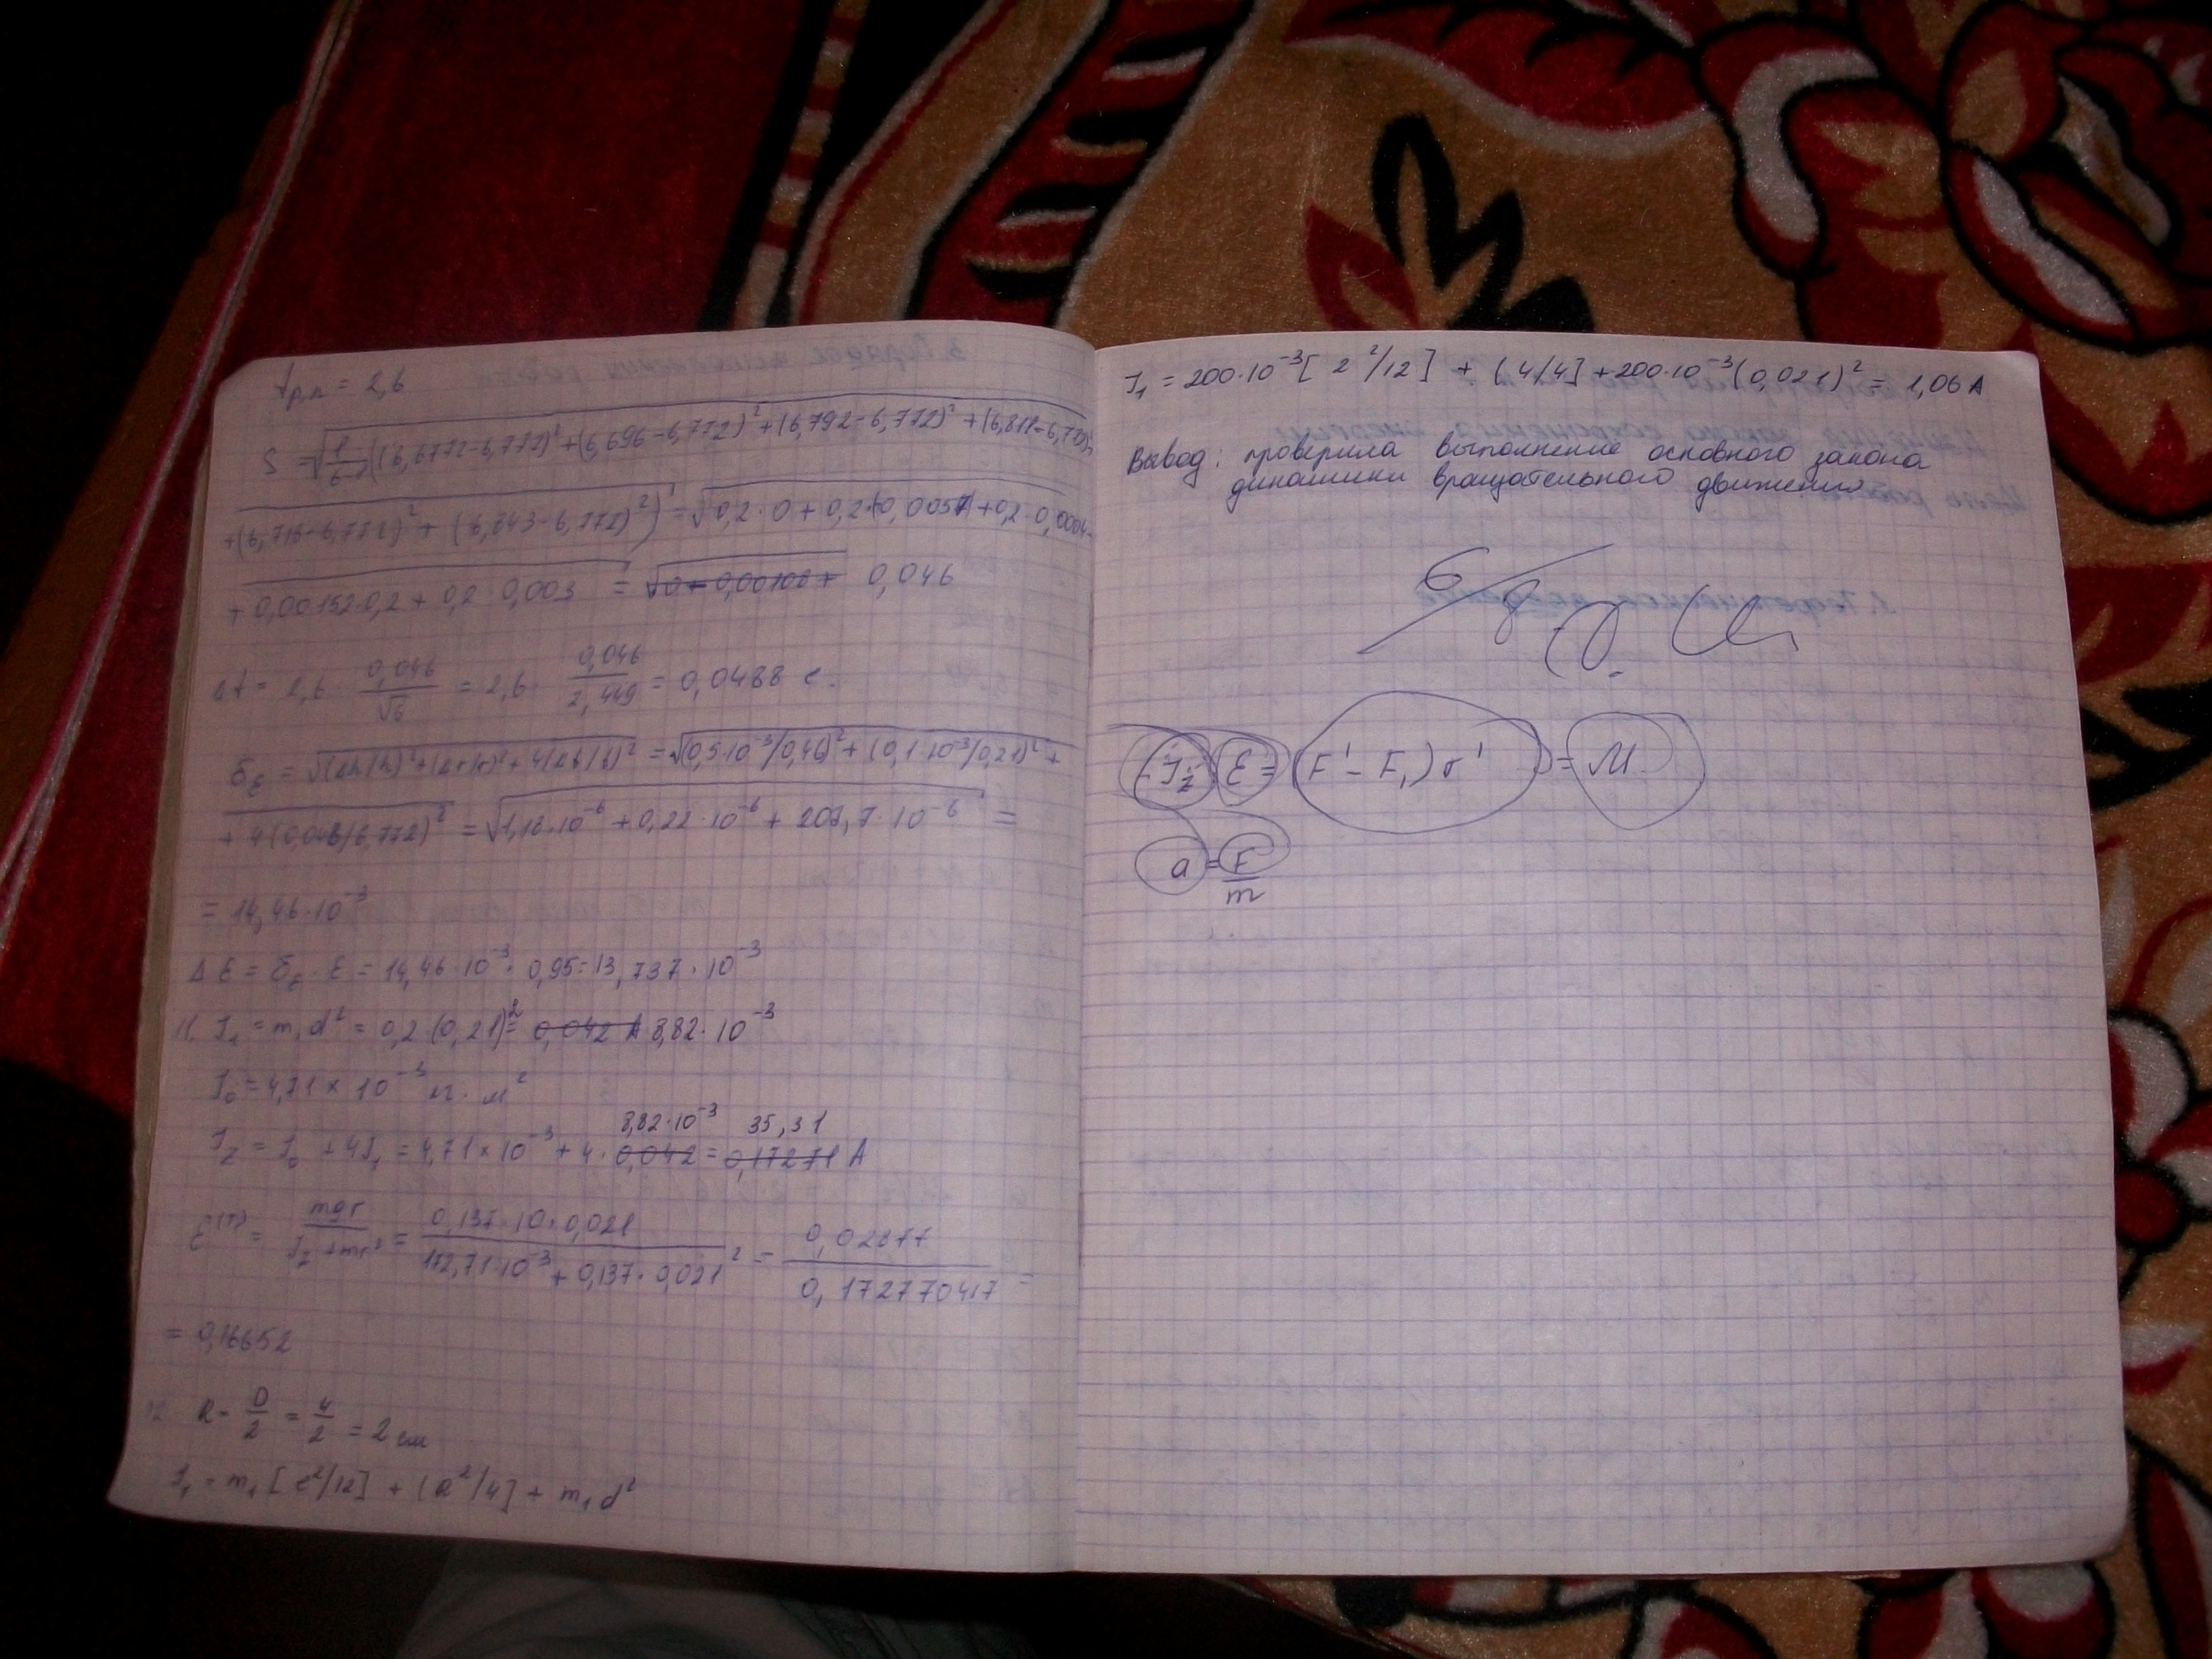 t р,n = 2,6
S = √(1/(6-1)((6,6772-6,772)² + (6,696-6,772)² + (6,792-6,772)² + (6,811-6,772)²
+ (6,718-6,772)² + (6,843-6,772)²) = √(0,2·0 + 0,2·(0,0057) + 0,2·0,0004
+ 0,00152·0,2 + 0,2·0,003 = 0,046
Δt = 2,6 · 0,046/√6 = 2,6 · 0,046/2,449 = 0,0488 с.
δε = √((Δh/h)² + (Δr/r)² + 4(Δt/t)² = √((0,5·10⁻³/0,46)² + (0,1·10⁻³/0,21)² +
+ 4(0,048/6,772)² = √(1,18·10⁻⁶ + 0,22·10⁻⁶ + 207,7·10⁻⁶ =
= 14,46·10⁻³
Δε = δε · ε = 14,46·10⁻³ · 0,95 = 13,737·10⁻³
11. J₁ = m₁d² = 0,2(0,21)² = 0,042 A 8,82·10⁻³
J₀ = 4,71 × 10⁻³ кг·м²
8,82·10⁻³ 35,31
Jz = J₀ + 4J₁ = 4,71×10⁻³ + 4·0,042 = 0,17271 A
ε⁽ᵀ⁾ = mgr/(Jz + mr²) = 0,137·10·0,021/(172,71·10⁻³ + 0,137·0,021²) = 0,02877/0,172770417 =
= 0,16652
12. R = D/2 = 4/2 = 2 см
J₁ = m₁[ℓ²/12] + (R²/4] + m₁d²
J₁ = 200·10⁻³[2²/12] + (4/4] + 200·10⁻³(0,021)² = 1,06 A
Вывод: проверила выполнение основного закона
динамики вращательного движения
(Jz ε = (F' - F₁)r' = M
a = F/m